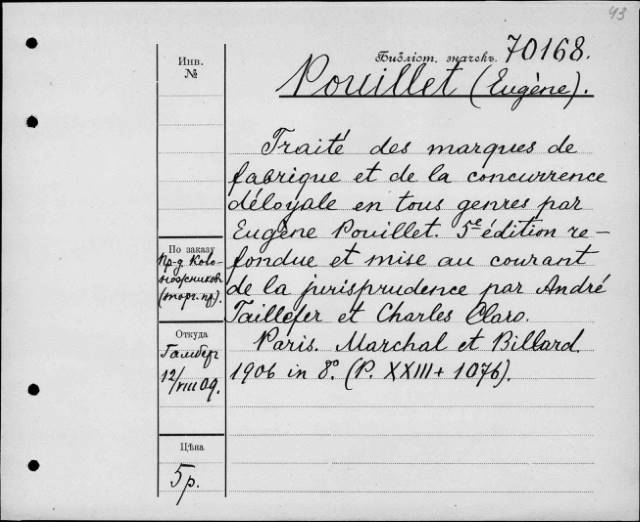 43
Библіот. значекъ 70168.
Pouillet (Eugène).
Инв.
№
Traité des marques de
fabrique et de la concurrence
déloyale en tous genres par
Eugène Pouillet. 5e édition re-
fondue et mise au courant
de la jurisprudence par André
Taillefer et Charles Claro.
Paris. Marchal et Billard.
1906 in 8º. (P. XXIII + 1076).
По заказу
(торг. пр).
Откуда
Гамберг
12/VIII 09.
Цѣна
5 р.